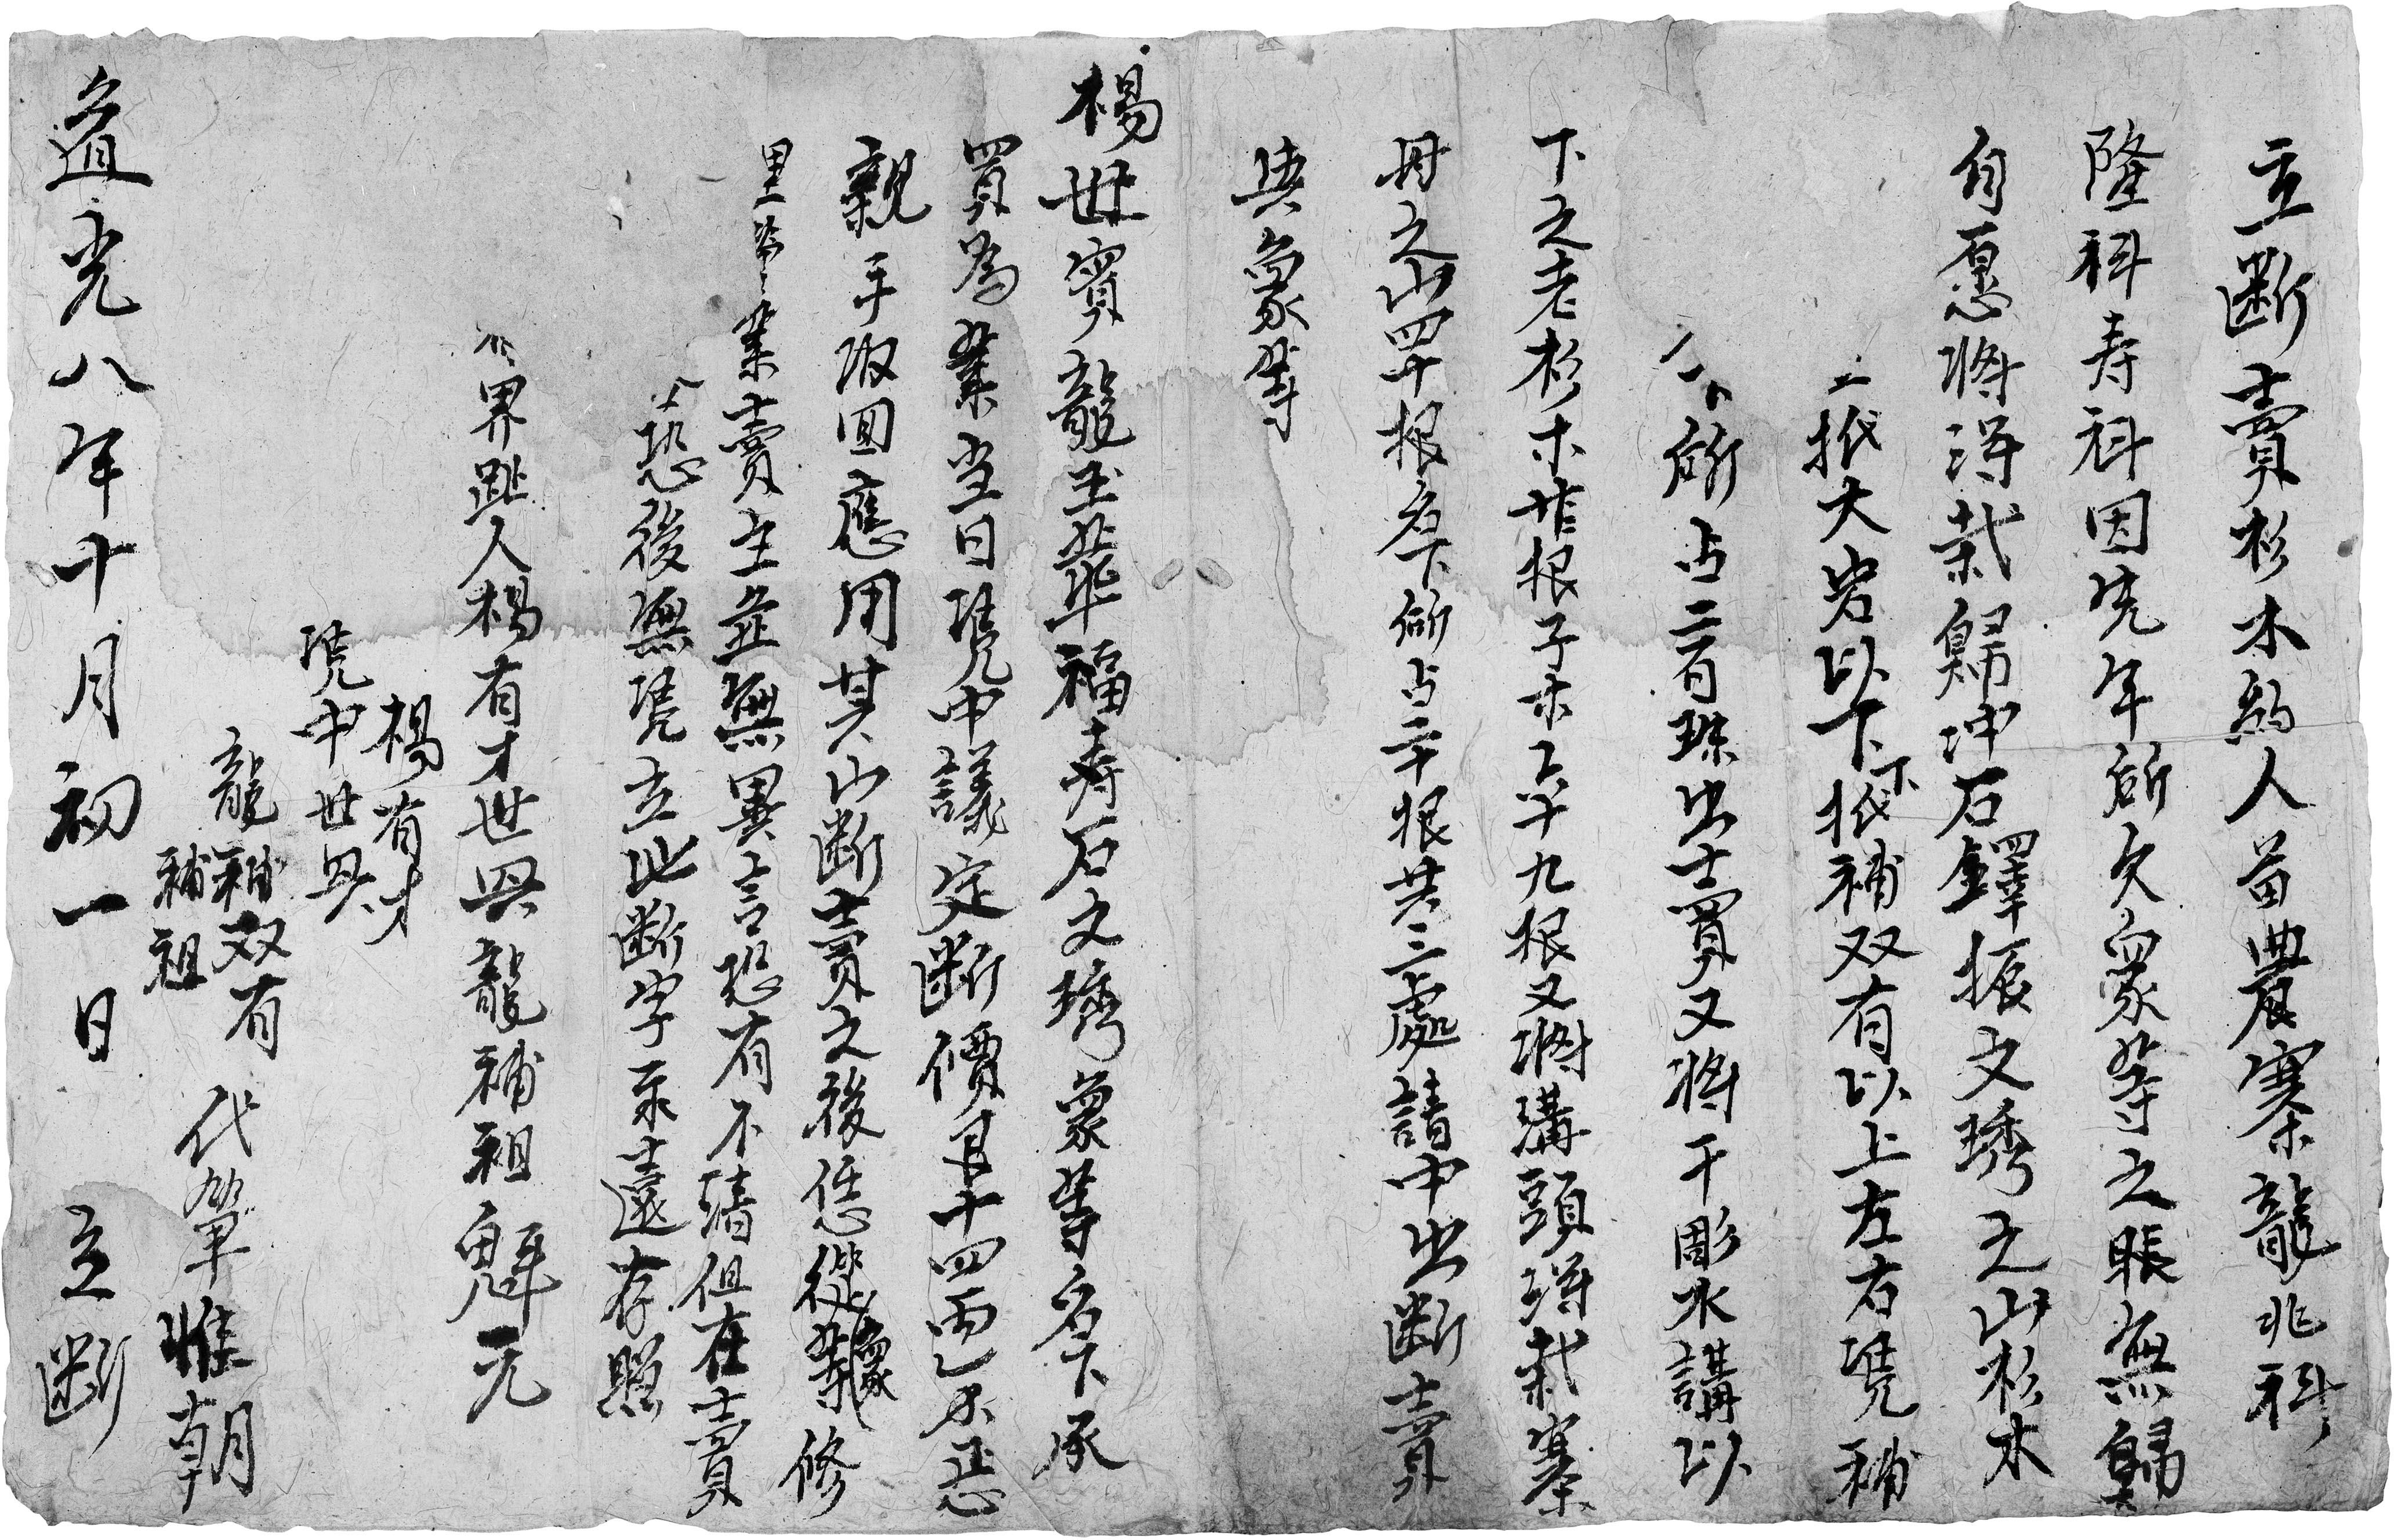 立断賣杉木約人苗農寨龍兆科
隆科寿科因先年所欠象等之賬無歸
自愿將得栽歸冲石鐸振文琇之山杉木
上抵大岩以下下抵補双有以上左右凴補
所占二百株出賣又將干彫水講以
下之老杉木苷根子木六十九根又將溝頭得栽寨
毋之山四十根名下所占二十根共三處請中出断賣
與象等
楊世賓龍玉華福寿石文琇象等名下承
買為業当日凴中議定断價艮十四両正
親手收囬應用其山断賣之後恁從象等修
理管業賣主並無異言恐有不清俱在賣
恐後無凴立此断字承遠存照
界趾人楊有才世興龍補祖魁元
楊有才
凴中世興
龍補双有
補祖
代筆惟朝
道光八年十月初一日立断